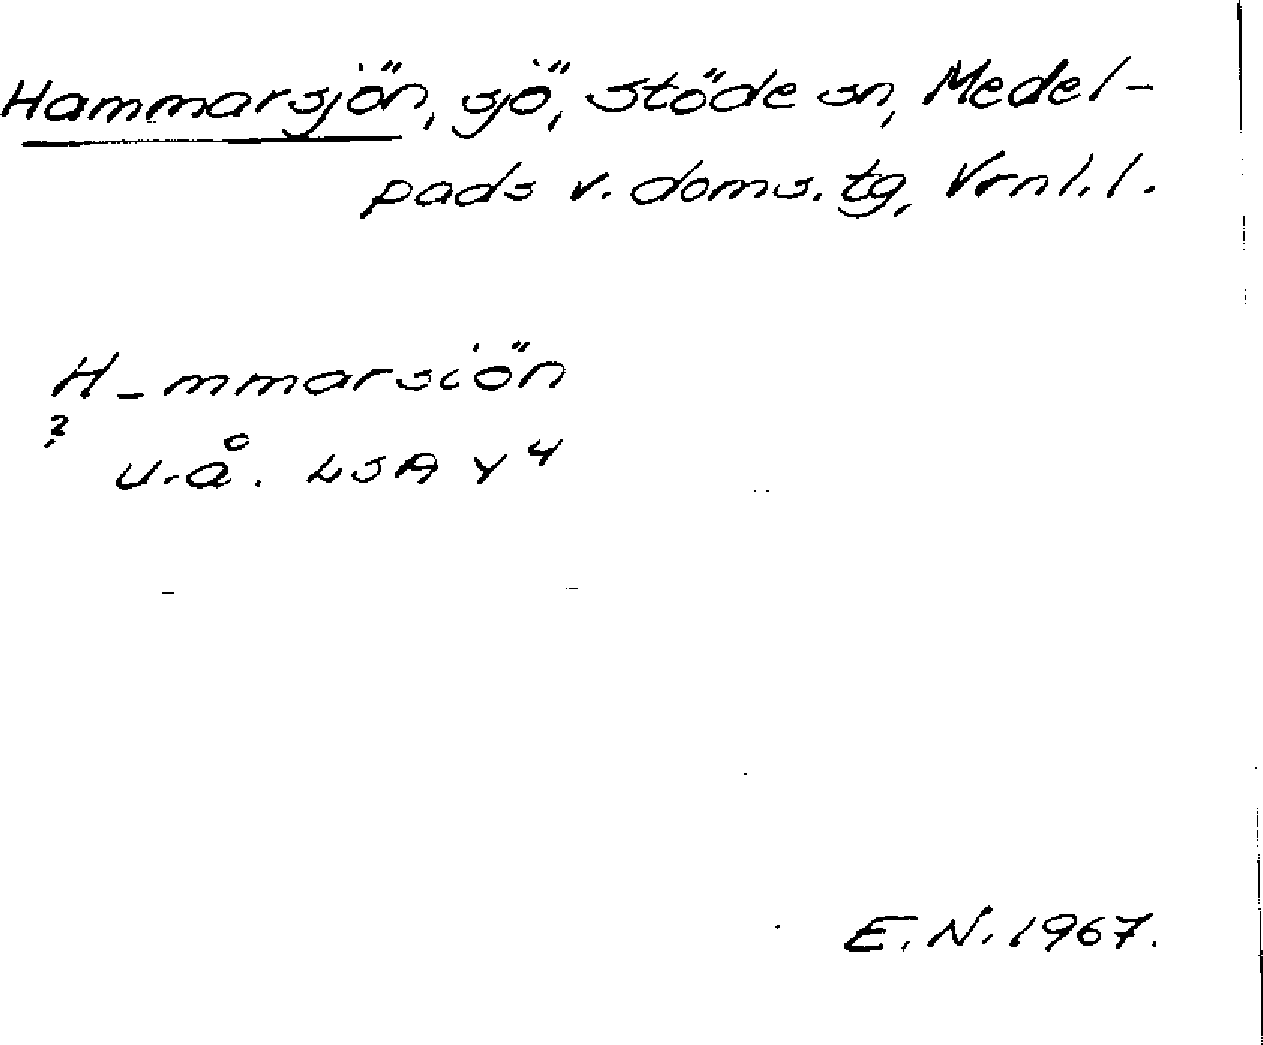 Hammarsjön, sjö, Stöde sn, Medel-
pads v. doms. tg, Vrnl. l.
H-mmarsiön
?
u.å. LSA Y 4
E. N. 1967.